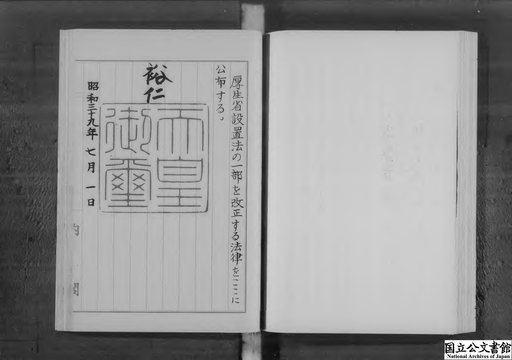 厚生省設置法の一部を改正する法律をここに
公布する。
裕仁
天皇
御璽
昭和三十九年七月一日
内閣
国立公文書館
National Archives of Japan